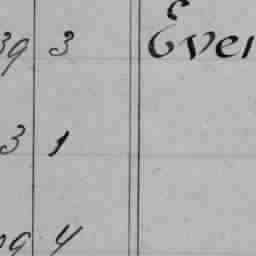 39 3 Ever
3 1
9 4